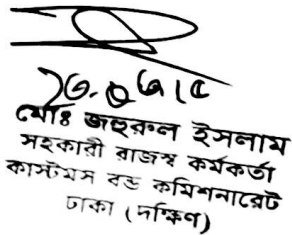 মোঃ জহুরুল ইসলাম
সহকারী রাজস্ব কর্মকর্তা
কাস্টমস বন্ড কমিশনারেট
ঢাকা (দক্ষিণ)